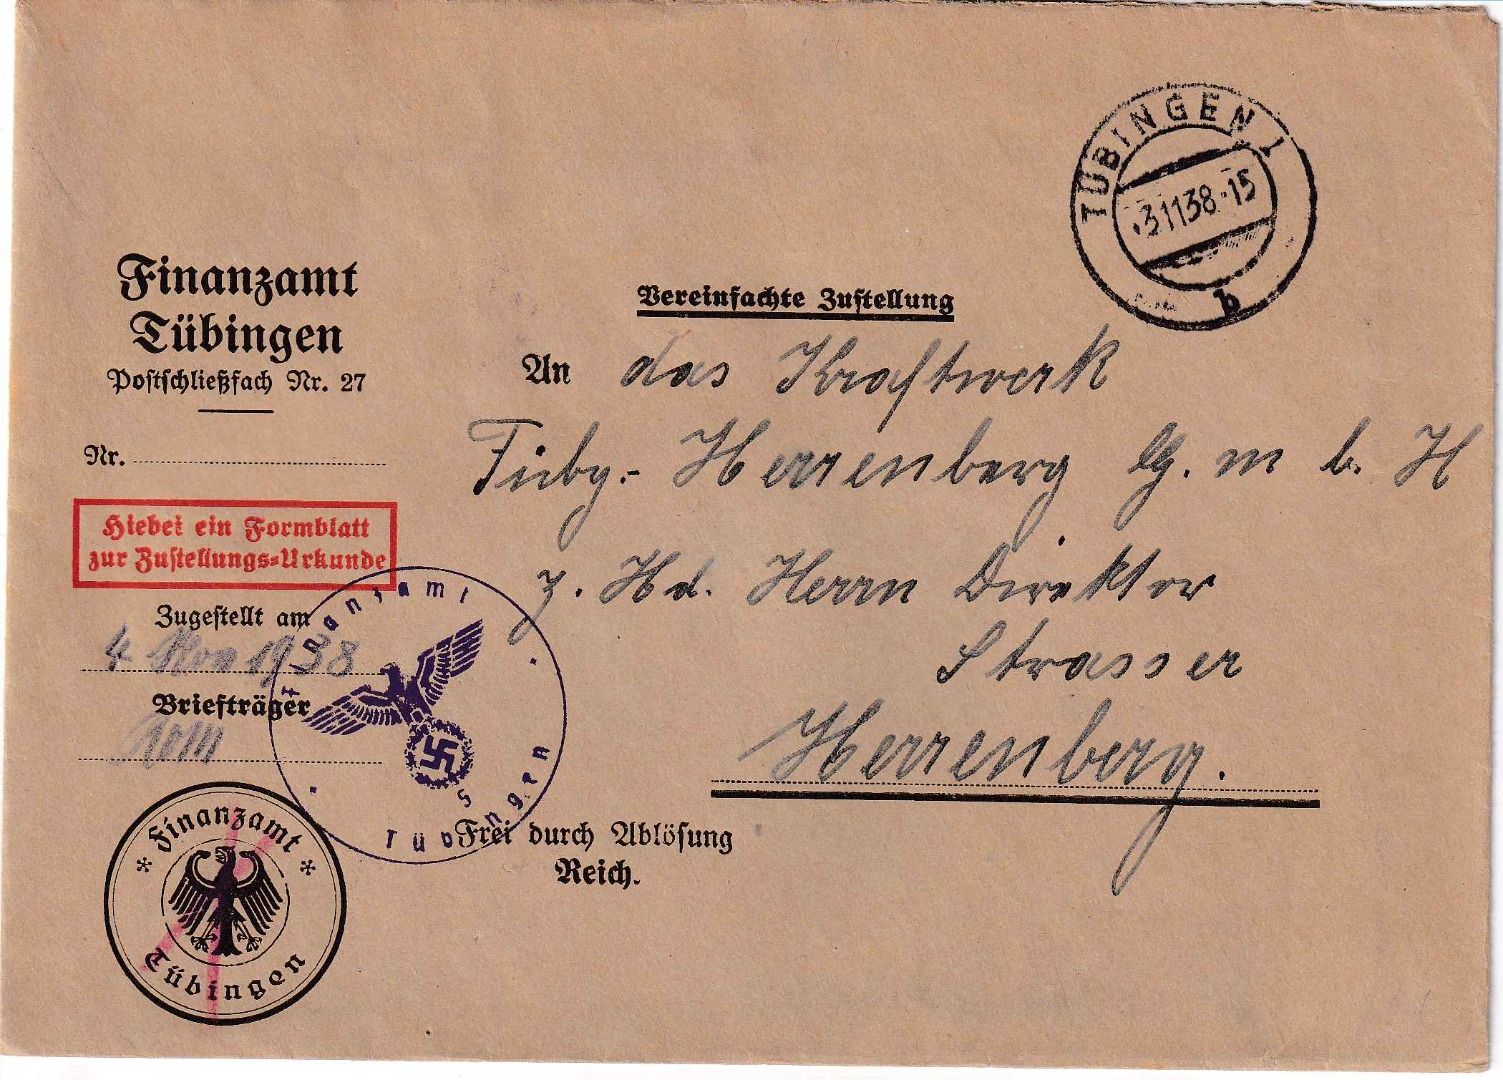 TÜBINGEN 1
3.11.38.-15
b
Finanzamt
Tübingen
Postschließfach Nr. 27
Nr.
Vereinfachte Zustellung
An das Kraftwerk
Tübg.- Herrenberg G. m b. H
z. Hd. Herrn Direktor
Strasser
Herrenberg.
Hiebei ein Formblatt
zur Zustellungs=Urkunde
Zugestellt am
4. Nov 1938
Briefträger
Finanzamt
Tübingen
5
Frei durch Ablösung
Reich.
Finanzamt
Tübingen